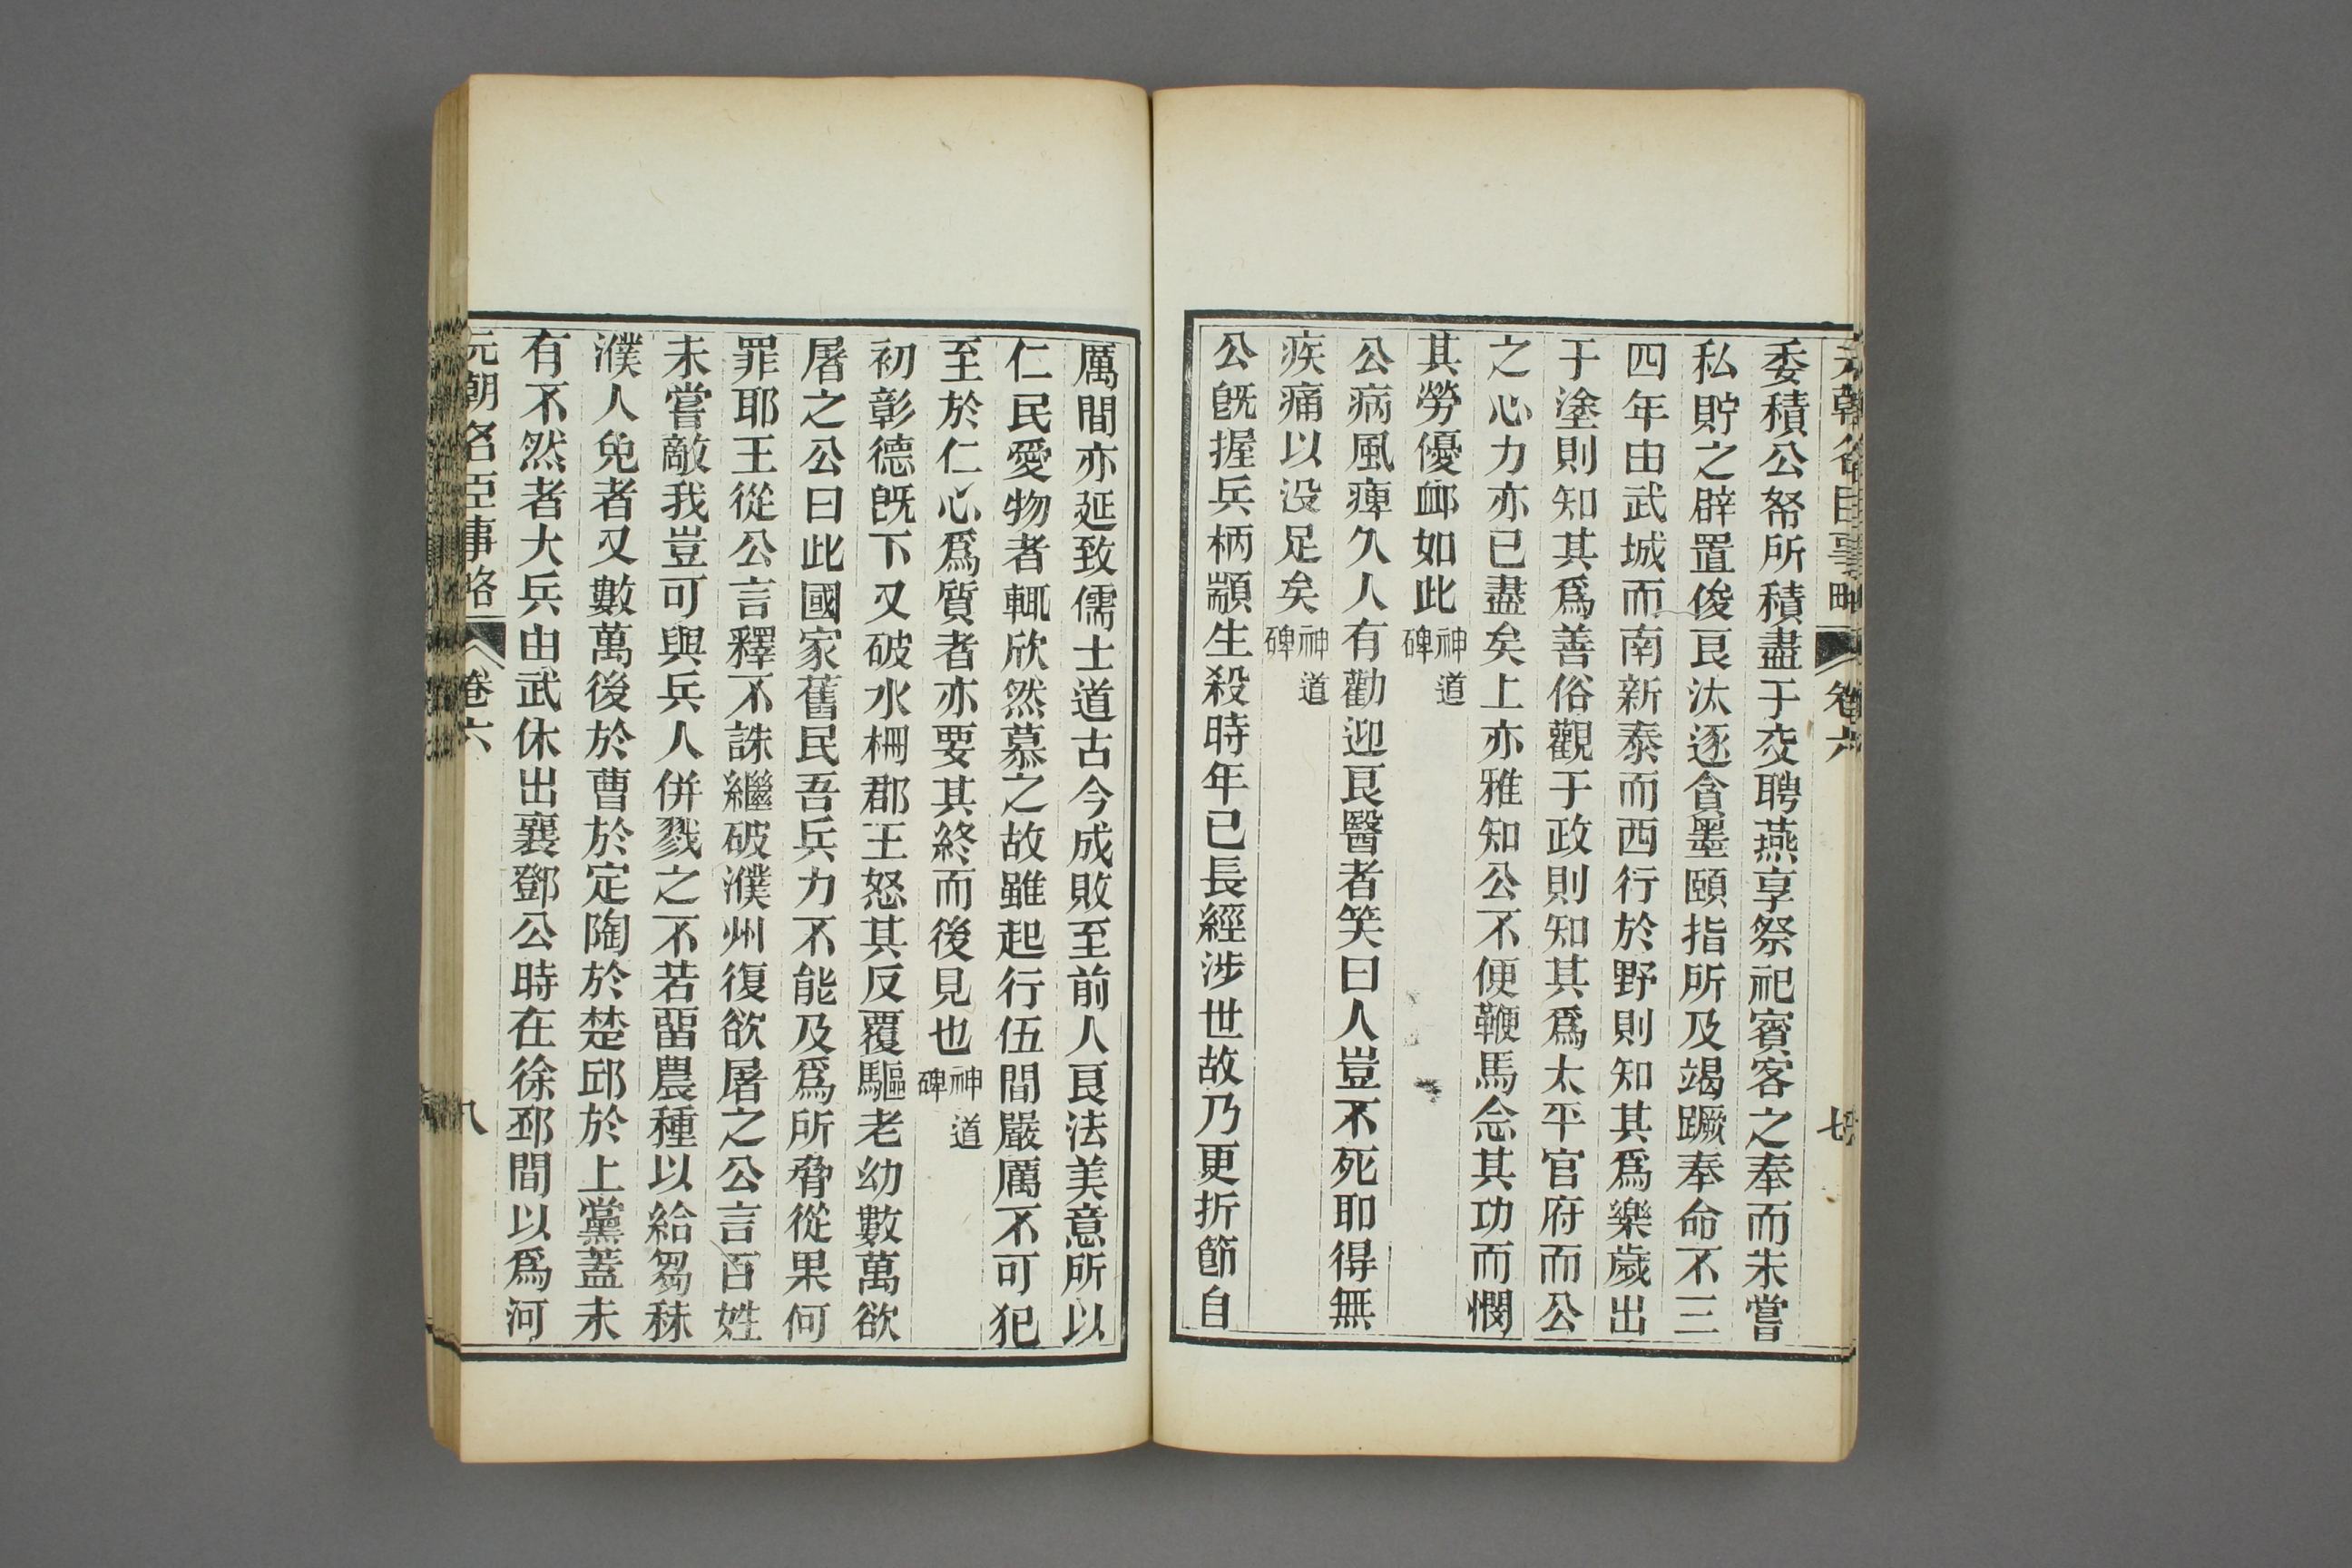 元朝名臣事略 卷六 七
委積公帑所積盡于交聘燕享祭祀賓客之奉而未嘗
私貯之辟置俊良汰逐貪墨頤指所及竭蹶奉命不三
四年由武城而南新泰而西行於野則知其爲樂歲出
于塗則知其爲善俗觀于政則知其爲太平官府而公
之心力亦已盡矣上亦雅知公不便鞭馬念其功而憫
其勞優卹如此神道碑
公病風痺久人有勸迎良醫者笑曰人豈不死耶得無
疾痛以没足矣神道碑
公旣握兵柄顓生殺時年已長經涉世故乃更折節自
厲間亦延致儒士道古今成敗至前人良法美意所以
仁民愛物者輒欣然慕之故雖起行伍間嚴厲不可犯
至於仁心爲質者亦要其終而後見也神道碑
初彰德旣下又破水柵郡王怒其反覆驅老幼數萬欲
屠之公曰此國家舊民吾兵力不能及爲所脅從果何
罪耶王從公言釋不誅繼破濮州復欲屠之公言百姓
未嘗敵我豈可與兵人併戮之不若畱農種以給芻秣
濮人免者又數萬後於曹於定陶於楚邱於上黨蓋未
有不然者大兵由武休出襄鄧公時在徐邳間以爲河
元朝名臣事略 卷六 八